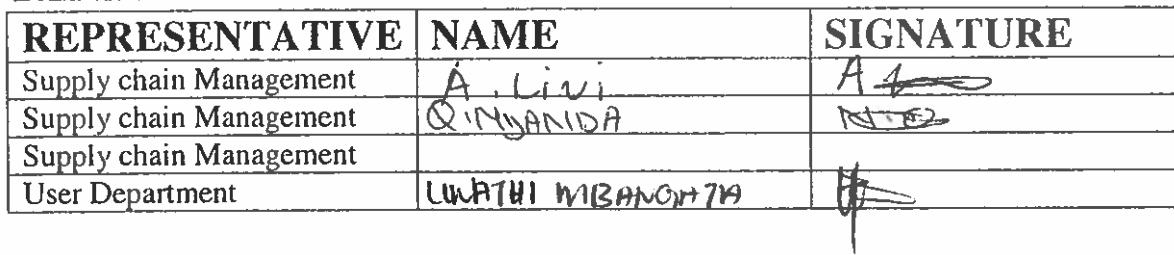 REPRESENTATIVE NAME SIGNATURE
Supply chain Management A. Livi A
Supply chain Management
Supply chain Management
User Department